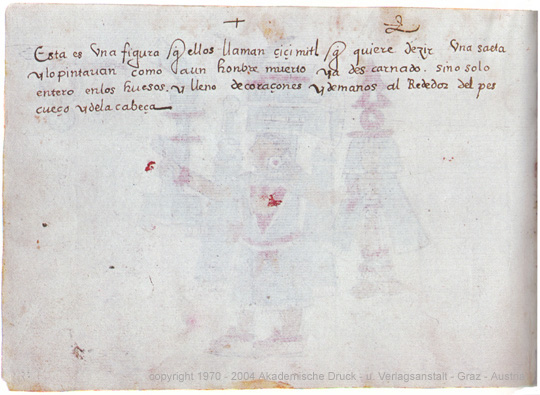 Esta es Una figura q̃ ellos llaman çiçimitl q̃ quiere dezir Una saeta
y lo pintauan como aun honbre muerto ya des carnado. sino solo
entero enlos huesos. y lleno decoraçones y demanos al Rededor del pes
cueço y dela cabeça
copyright 1970 - 2004 Akademische Druck - u. Verlagsanstalt - Graz - Austria